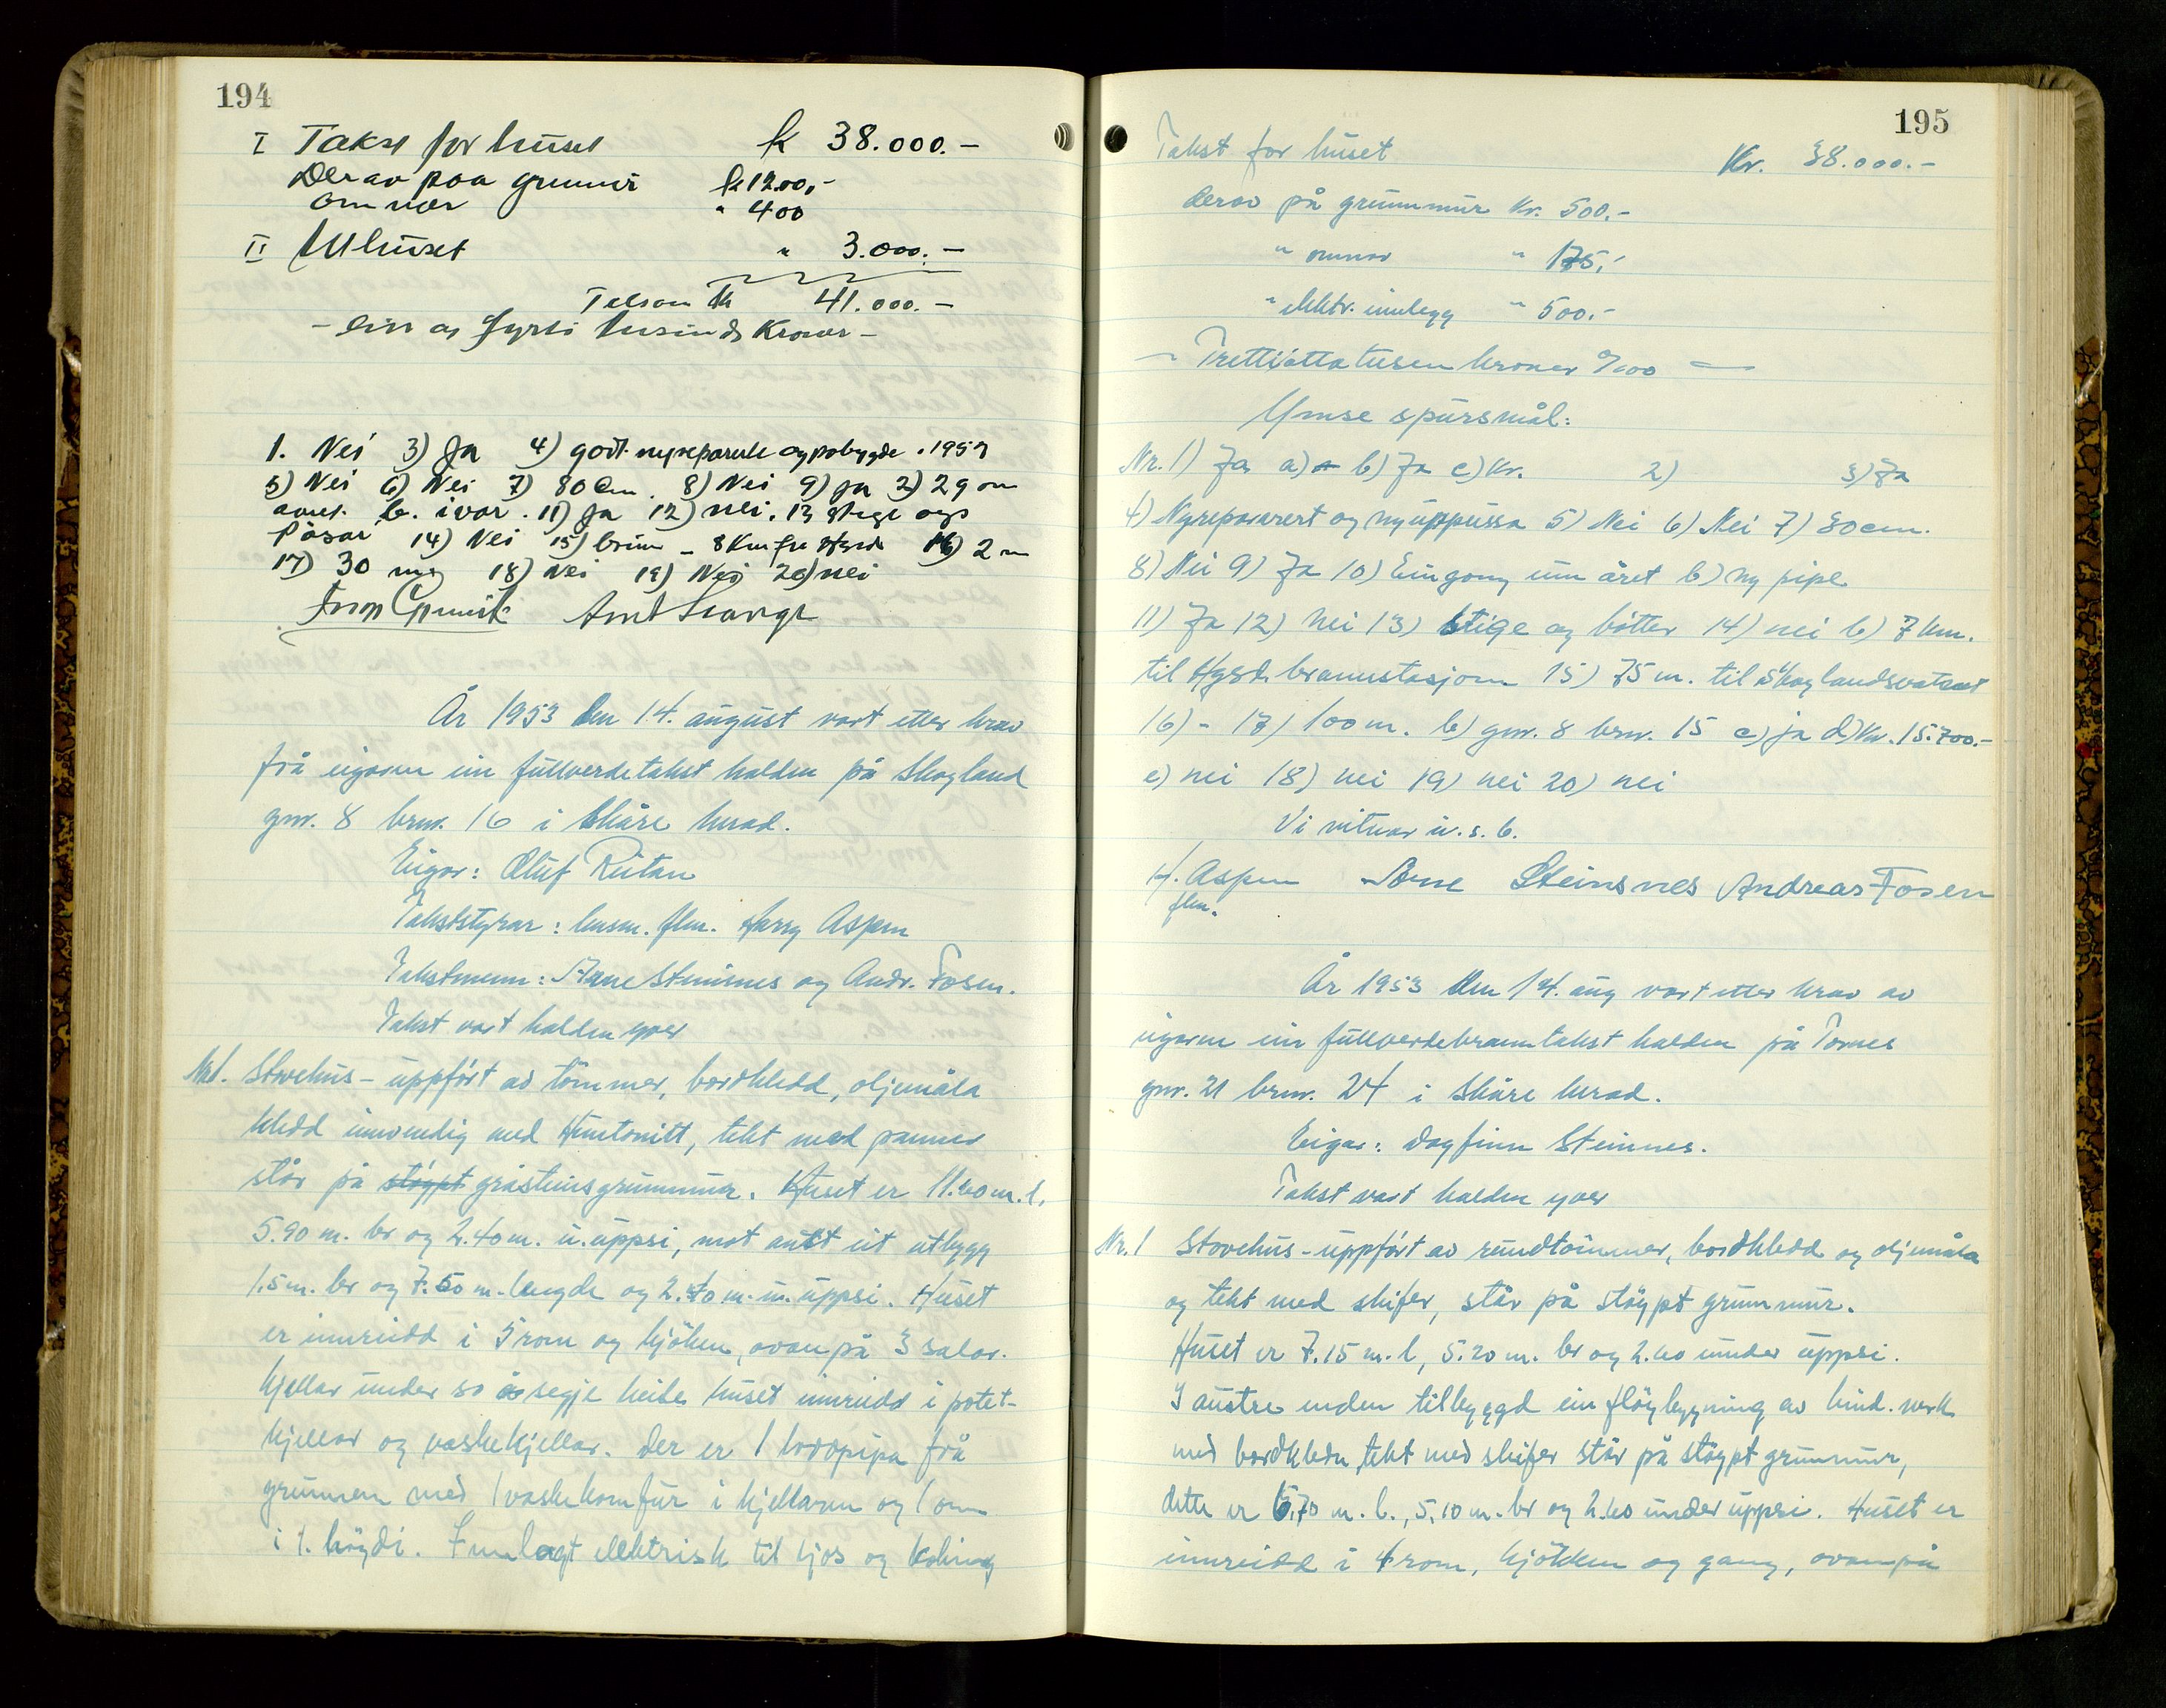 194
I Takst for huset k 38.000.-
Derav paa grunmur k 1200,-
omner " 400
II Uthuset " 3.000.-
Tilsam k 41.000.-
- Ein og fyrti tusind Kroner -
1. Nei 3) Ja 4) godt. nyreparerte og paabygde i 1953
5) Nei 6) Nei 7) 80 Cm. 8) Nei 9) Ja 2) 29 om
aaret. b. ivar. 11) Ja 12) nei. 13 stege og
Pøsar 14) Nei 15) brun - 8 Km fra 16) 2 m
17) 30 m 18) Nei 19) Nei 20) nei
År 1953 den 14. august vart etter krav
frå eigaren ein fullverdetakst halden på Skogland
gnr. 8 brnr. 16 i Skåre herad.
Eigar: Oluf Reitan
Takststyrar: lensm. flm. Harry Aspen
Takstmenn: Arne Steinsnes og Andr. Fosen.
Takst vart halden yver
Nr 1. Stovehus - uppført av tømmer, bordkledd, oljemåla
kledd innvendig med Huntonitt, tekt med panner
står på støypt gråsteinsgrunnmur. Huset er 11.40 m. l.
5.90 m. br og 2.40 m. u. uppsi, mot aust eit utbygg
1.5 m. br og 7.50 m. lengde og 2.40 m. u. uppsi. Huset
er innreidd i 5 rom og kjøken, ovanpå 3 salar.
Kjellar under so å segje heile huset innreidd i potet-
kjellar og vaskekjellar. Der er 1 brodpipa frå
grunnen med 1 vaskekomfur i kjellaren og 1 omn
i 1. høgdi. Innlagt elektrisk til ljos og koking
195
Takst for huset Kr. 38.000.-
derav på grunnmur Kr. 500.-
" omnar " 175,-
" elektr. innlegg " 500.-
- Trettiåtta tusen kroner 0/00 -
Ymse spursmål:
Nr. 1) Ja a) b) Ja c) Kr. 2) 3) Ja
4) Nyreparert og nyuppussa 5) Nei 6) Nei 7) 80 cm.
8) Nei 9) Ja 10) Ein gong um året b) ny pipe
11) Ja 12) Nei 13) Stige og bøtter 14) nei b) 7 km.
til Hgsd. brannstasjon 15) 75 m. til Skoglandsvatnet
16) - 17) 100 m. b) gnr. 8 brnr. 15 c) ja d) Kr. 15.700.-
e) nei 18) nei 19) nei 20) nei
Vi vitnar u. s. b.
H. Aspen Arne Steinsnes Andreas Fosen
flm.
År 1953 den 14. aug vart etter krav av
eigaren ein fullverdebranntakst halden på Tornes
gnr. 21 brnr. 24 i Skåre herad.
Eigar: Dagfinn Steinnes.
Takst vart halden yver
Nr. 1 Stovehus - uppført av rundtømmer, bordkledd og oljemåla
og tekt med skifer, står på støypt grunnmur.
Huset er 7.15 m. l, 5.20 m. br og 2.40 under uppsi.
I austre enden tilbyggd ein fløybyggning av bind. verk
med bordkledn, tekt med skifer står på støypt grunnmur,
dette er 6.70 m. l., 5.10 m. br og 2.40 under uppsi. Huset er
innreidd i 4 rom, kjøkken og gang, ovanpå